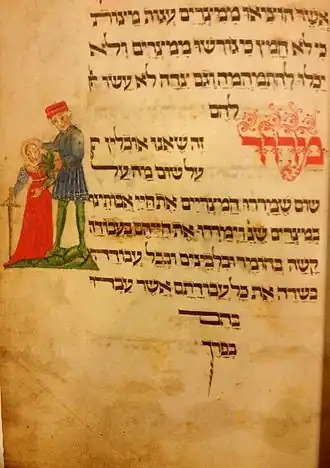 אשר הוציאו ממצרים עגות מצות
כי לא חמץ כי גורשו ממצרים ולא
יכלו להתמהמה וגם צדה לא עשו
להם
מרור זה שאנו אוכלין
על שום מה על
שום שמררו המצריים את חיי אבותינו
במצרים שנ וימררו את חייהם בעבודה
קשה בחומר ובלבנים ובכל עבודה
בשדה את כל עבודתם אשר עבדו
בהם
בפרך